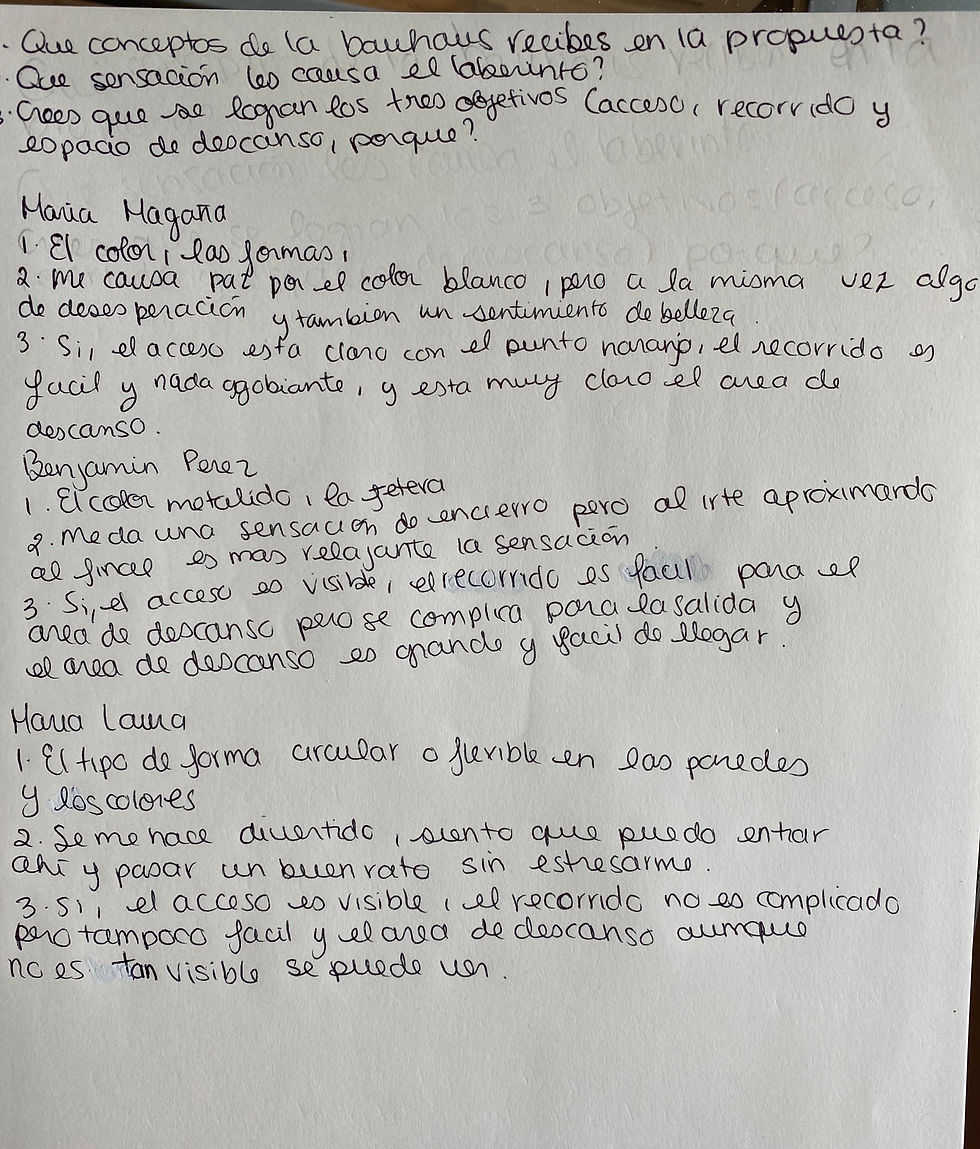 . Que conceptos de la bauhaus recibes en la propuesta?
. Que sensación les causa el laberinto?
3. Crees que se logran los tres objetivos (acceso, recorrido y
espacio de descanso, porque?
Maria Magaña
1. El color, las formas,
2. Me causa paz por el color blanco, pero a la misma vez algo
de desesperación y tambien un sentimiento de belleza.
3. Si, el acceso esta claro con el punto naranja, el recorrido es
facil y nada agobiante, y esta muy claro el area de
descanso.
Benjamin Perez
1. El color metalido, la
2. Me da una sensacion de encierro pero al irte aproximando
al final es mas relajante la sensación.
3. Si, el acceso es visible, el recorrido es facil para el
area de descanso pero se complica para la salida y
el area de descanso es grande y facil de llegar.
Maria Laura
1. El tipo de forma circular o flexible en las paredes
y los colores
2. Se me hace divertido, siento que puedo entrar
ahi y pasar un buen rato sin estresarme.
3. Si, el acceso es visible, el recorrido no es complicado
pero tampoco facil y el area de descanso aumque
no es tan visible se puede ver.